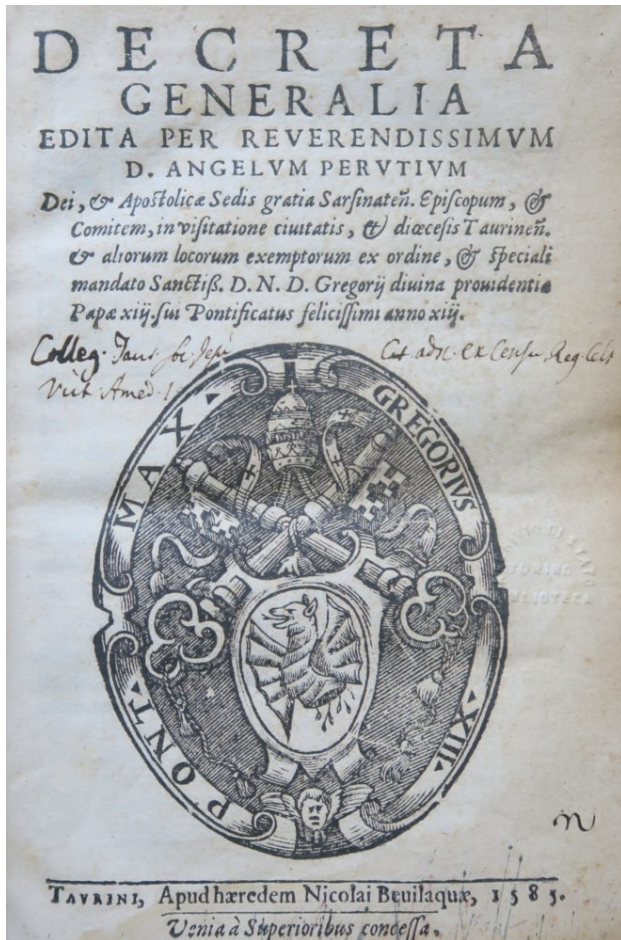 DECRETA
GENERALIA
EDITA PER REVERENDISSIMVM
D. ANGELVM PERVTIVM
Dei, & Apostolicæ Sedis gratia Sarsinateñ. Episcopum, &
Comitem, in visitatione ciuitatis, & diœcesis Taurineñ.
& aliorum locorum exemptorum ex ordine, & speciali
mandato Sanctiß. D. N. D. Gregorij diuina prouidentia
Papæ xiij. sui Pontificatus felicissimi anno xiij.
Colleg. Taur. Soc. Jesu Cat. adsc. ex Censu Reg. Cels
Vict. Amed. I
GREGORIVS
XIII
PONT
MAX
TAVRINI, Apud hæredem Nicolai Beuilaquæ, 1585.
Venia à Superioribus concessa.